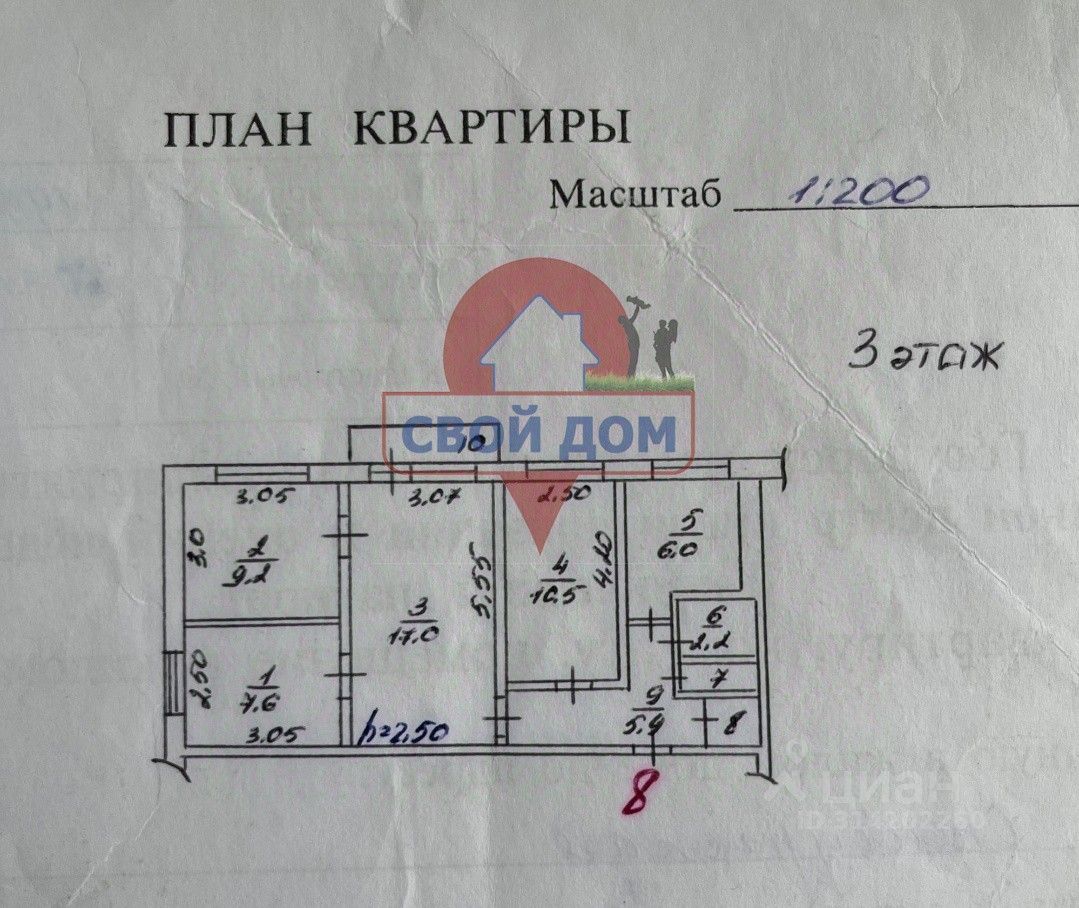 ПЛАН КВАРТИРЫ
Масштаб 1:200
3 этаж
СВОЙ ДОМ
10
3.05
3.07
2.50
3.0
2
9.2
5.55
4
10.5
4.20
5
6.0
3
17.0
6
2.2
2.50
1
7.6
7
3.05
h=2.50
9
5.9
8
8
циан